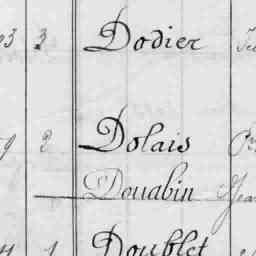 3 Dodier
9 2 Dolais
Douabin Jean
1 Doublet